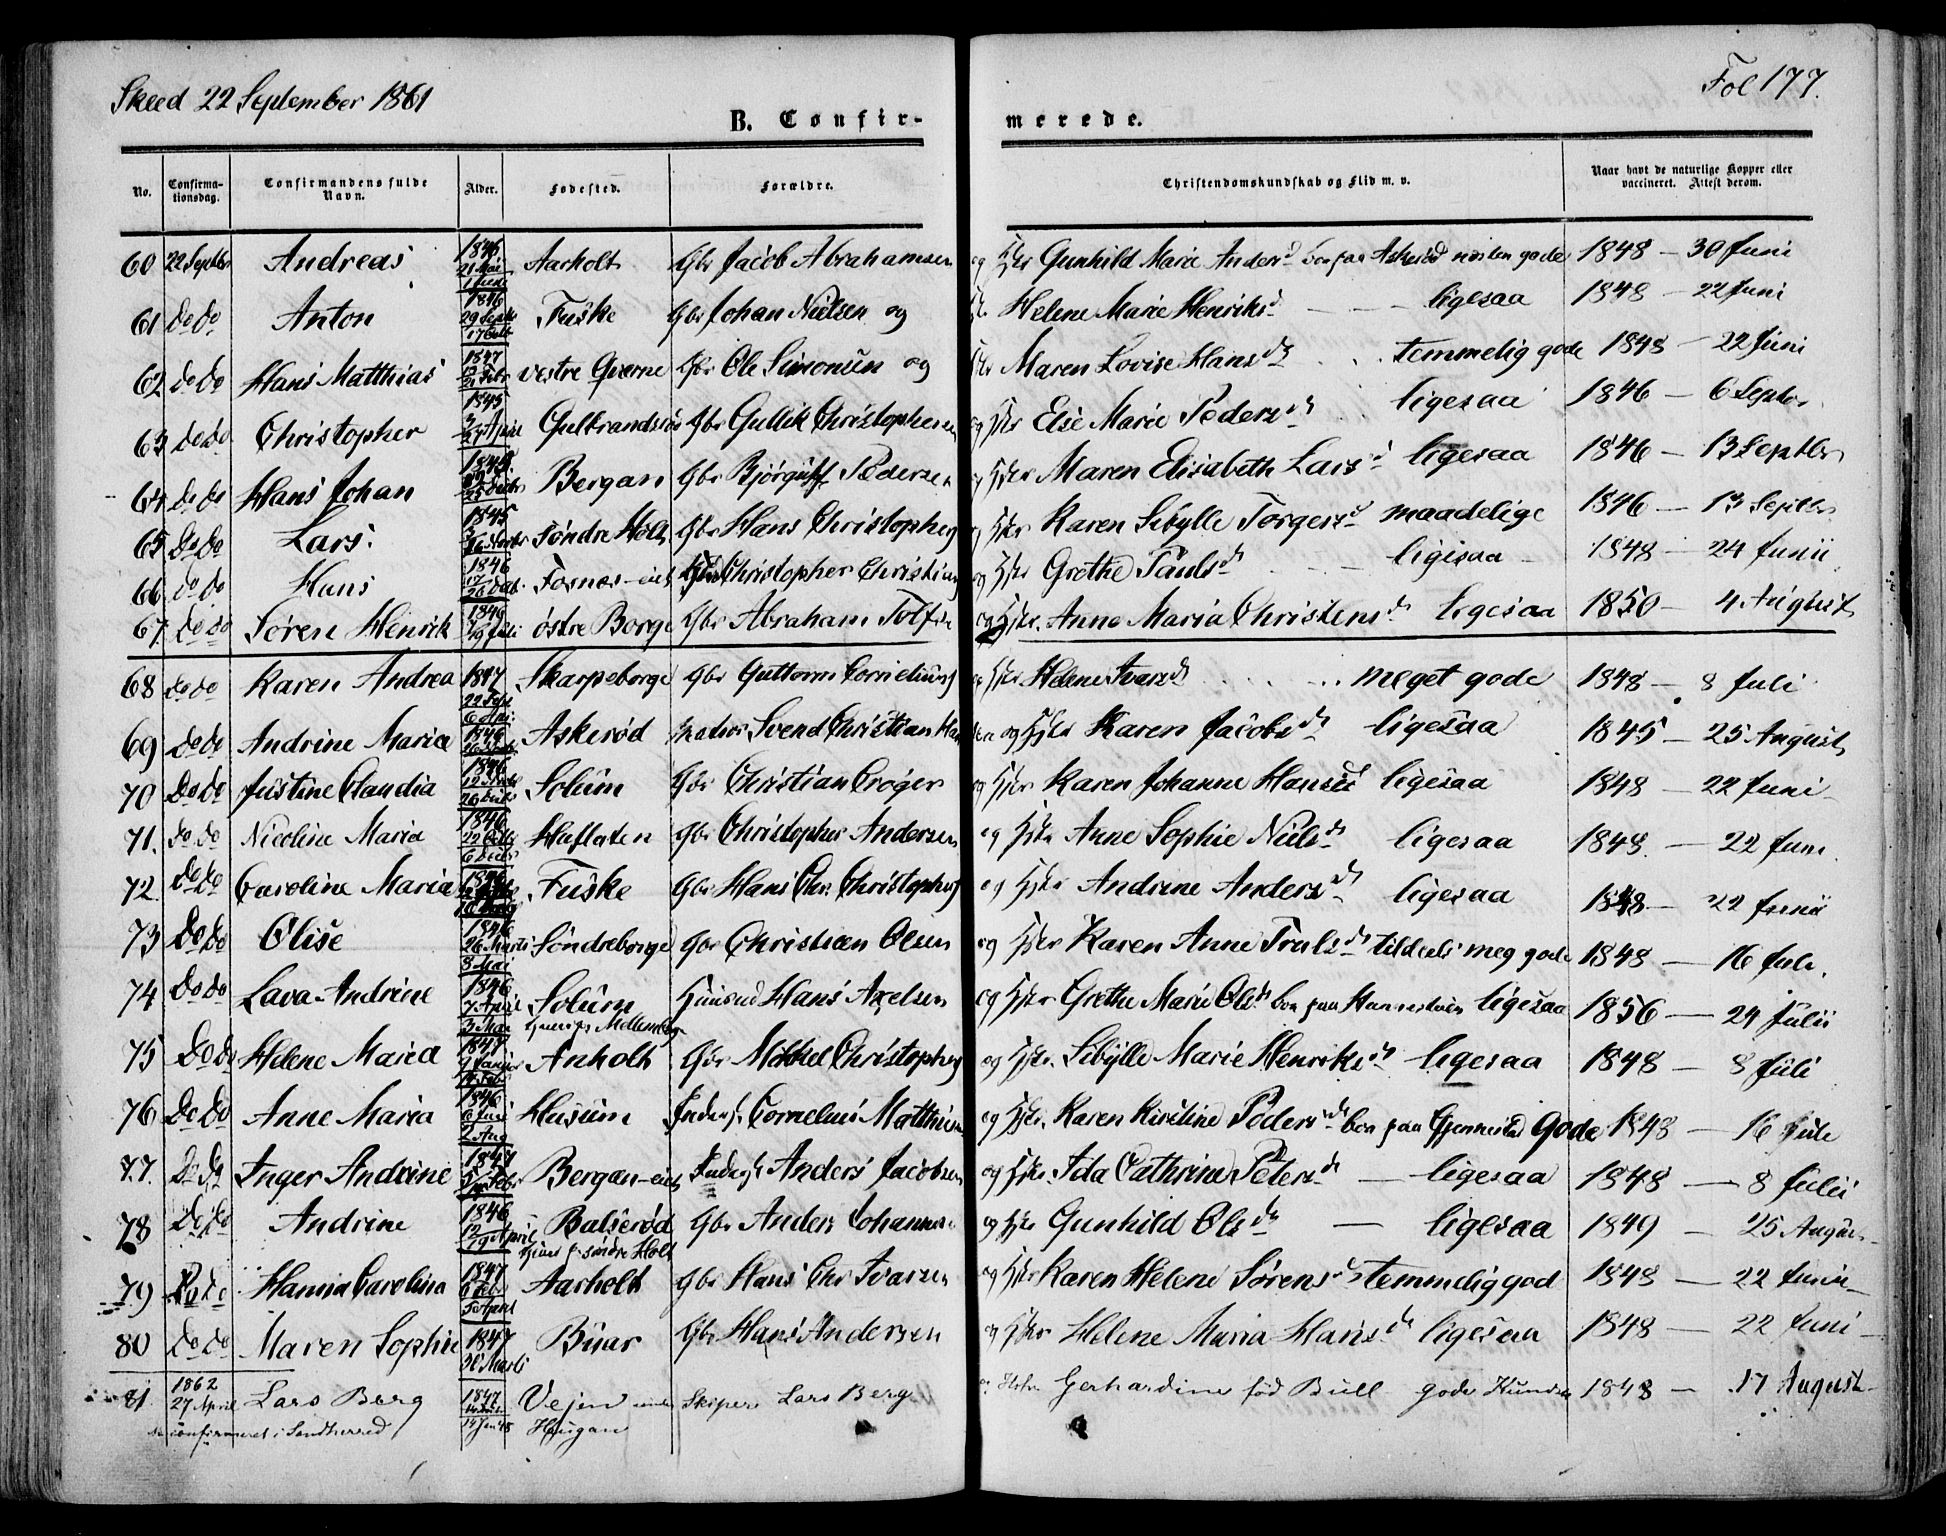 Skeed 22 September 1861
Fol 177.
B. Confirmerede.
No. Confirmationsdag. Confirmandens fulde Navn. Alder. Fødested. Forældre. Christendomskundskab og Flid m. v. Naar havt de naturlige Kopper eller vaccineret. Attest derom.
60 22 Septbr Andreas 1846 Aarholt Gbr Jacob Abrahamsen og Gunhild Marie Andersd boe paa Askerød næsten gode 1848 — 30 Juni
61 do do Anton 1846 29 Septr Fuske Gbr Johan Nielsen og Helene Marie Henriksd — ligesaa 1848 — 22 Juni
62 do do Hans Matthias 1847 vestre Gverne Gbr Ole Simonsen og Maren Lovise Hansd temmelig gode 1848 — 22 Juni
63 do do Christopher 1845 April Gulbrandsrø Gbr Gullik Christophersen og Hstr Else Marie Pedersd ligesaa 1846 — 6 Septbr
64 do do Hans Johan Bergan Gbr Pedersen og Hstr Maren Elisabeth Larsd ligesaa 1846 — 13 Septbr
65 do do Lars. 1845 Søndre Holt Gbr Hans Christophers og Hstr Karen Sibylle Torgersd maadelige 1846 — 13 Septbr
66 do do Hans 1846 Fosnæs-eiet Christopher Christians og Hstr Grethe Paulsd ligesaa 1848 — 24 Junii
67 do do Søren Henrik 1846 østre Borge Gbr Abraham Tolfsen og Hstr. Anne Maria Christensd ligesaa 1850 — 4 August
68 do do Karen Andrea 1847 Skarpeborge Gbr Guttorm Corneliuss og Hstr Helene Ivarsd meget gode 1848 — 8 Juli
69 do do Andrine Maria 1846 Askerød Matros Svend Christian Hansen og Hstr Karen Jacobsd ligesaa 1845 — 25 August
70 do do Justine Claudia 1846 Solum Gbr Christian Crøger og Hstr Karen Johanne Hansd ligesaa 1848 — 22 Juni
71. do do Nicoline Maria 1846 Haflaten Gbr Christopher Andersen og Hstr Anne Sophie Nielsd ligesaa 1848. — 22 Juni
72. do do Caroline Maria 1846 Fuske Gbr Hans Chr. Christophers og Hstr Andrine Andersd ligesaa 1848 — 22 Junii
73 do do Olise 1846 26 Marts 8 Mai Søndre borge Gbr Christian Olsen og Hstr Karen Anne Trulsd tildeels meg gode 1848 — 16 Juli.
74 do do Lava Andrine 1846 7 April 3 Mai Solum Huusmd Hans Axelsen og Hstr Grethe Marie Olsd boe paa ligesaa 1856 — 24 Julii
75 do do Helene Maria 1847 9 Januar Anholt Gbr Mikkel Christophers og Hstr. Sibylle Marie Henriksd ligesaa 1848 — 8 Juli
76 do do Anne Maria 1846 6 Juni 2 Aug Husum Inderst. Cornelius Matthisen og Hstr. Karen Kirstine Pedersd boe paa Gjennestad Gode 1848 — 16 Juli
77. do do Inger Andrine 1847 Bergan-eiet Inderst Anders Jacobsen og Hstr. Ida Cathrine Petersd — ligesaa 1848 — 8 Julii
78 do do Andrine 1846 12 19 April Balserød Gbr Anders Johannes og Hstr Gunhild Olsd — ligesaa 1849 — 25 August
79 do do Hanna Carolina 1847 6 Febr 5 April Aarholt Gbr Hans Chr Ivarsen og Hstr Karen Helene Sørensd temmelig god 1848 — 22 Junii
80 do do Maren Sophie 1847 30 Marts Buar Gbr Hans Andersen og Hstr Helene Maria Hansd ligesaa 1848 — 22 Juni
81. 1862 27 April Lars Berg 1847 Vejen under Haugan Skiper Lars Berg og Hstr Gerhardine fød Bull gode Kunds 1848 — 17 August
confirmeret i Sandherred